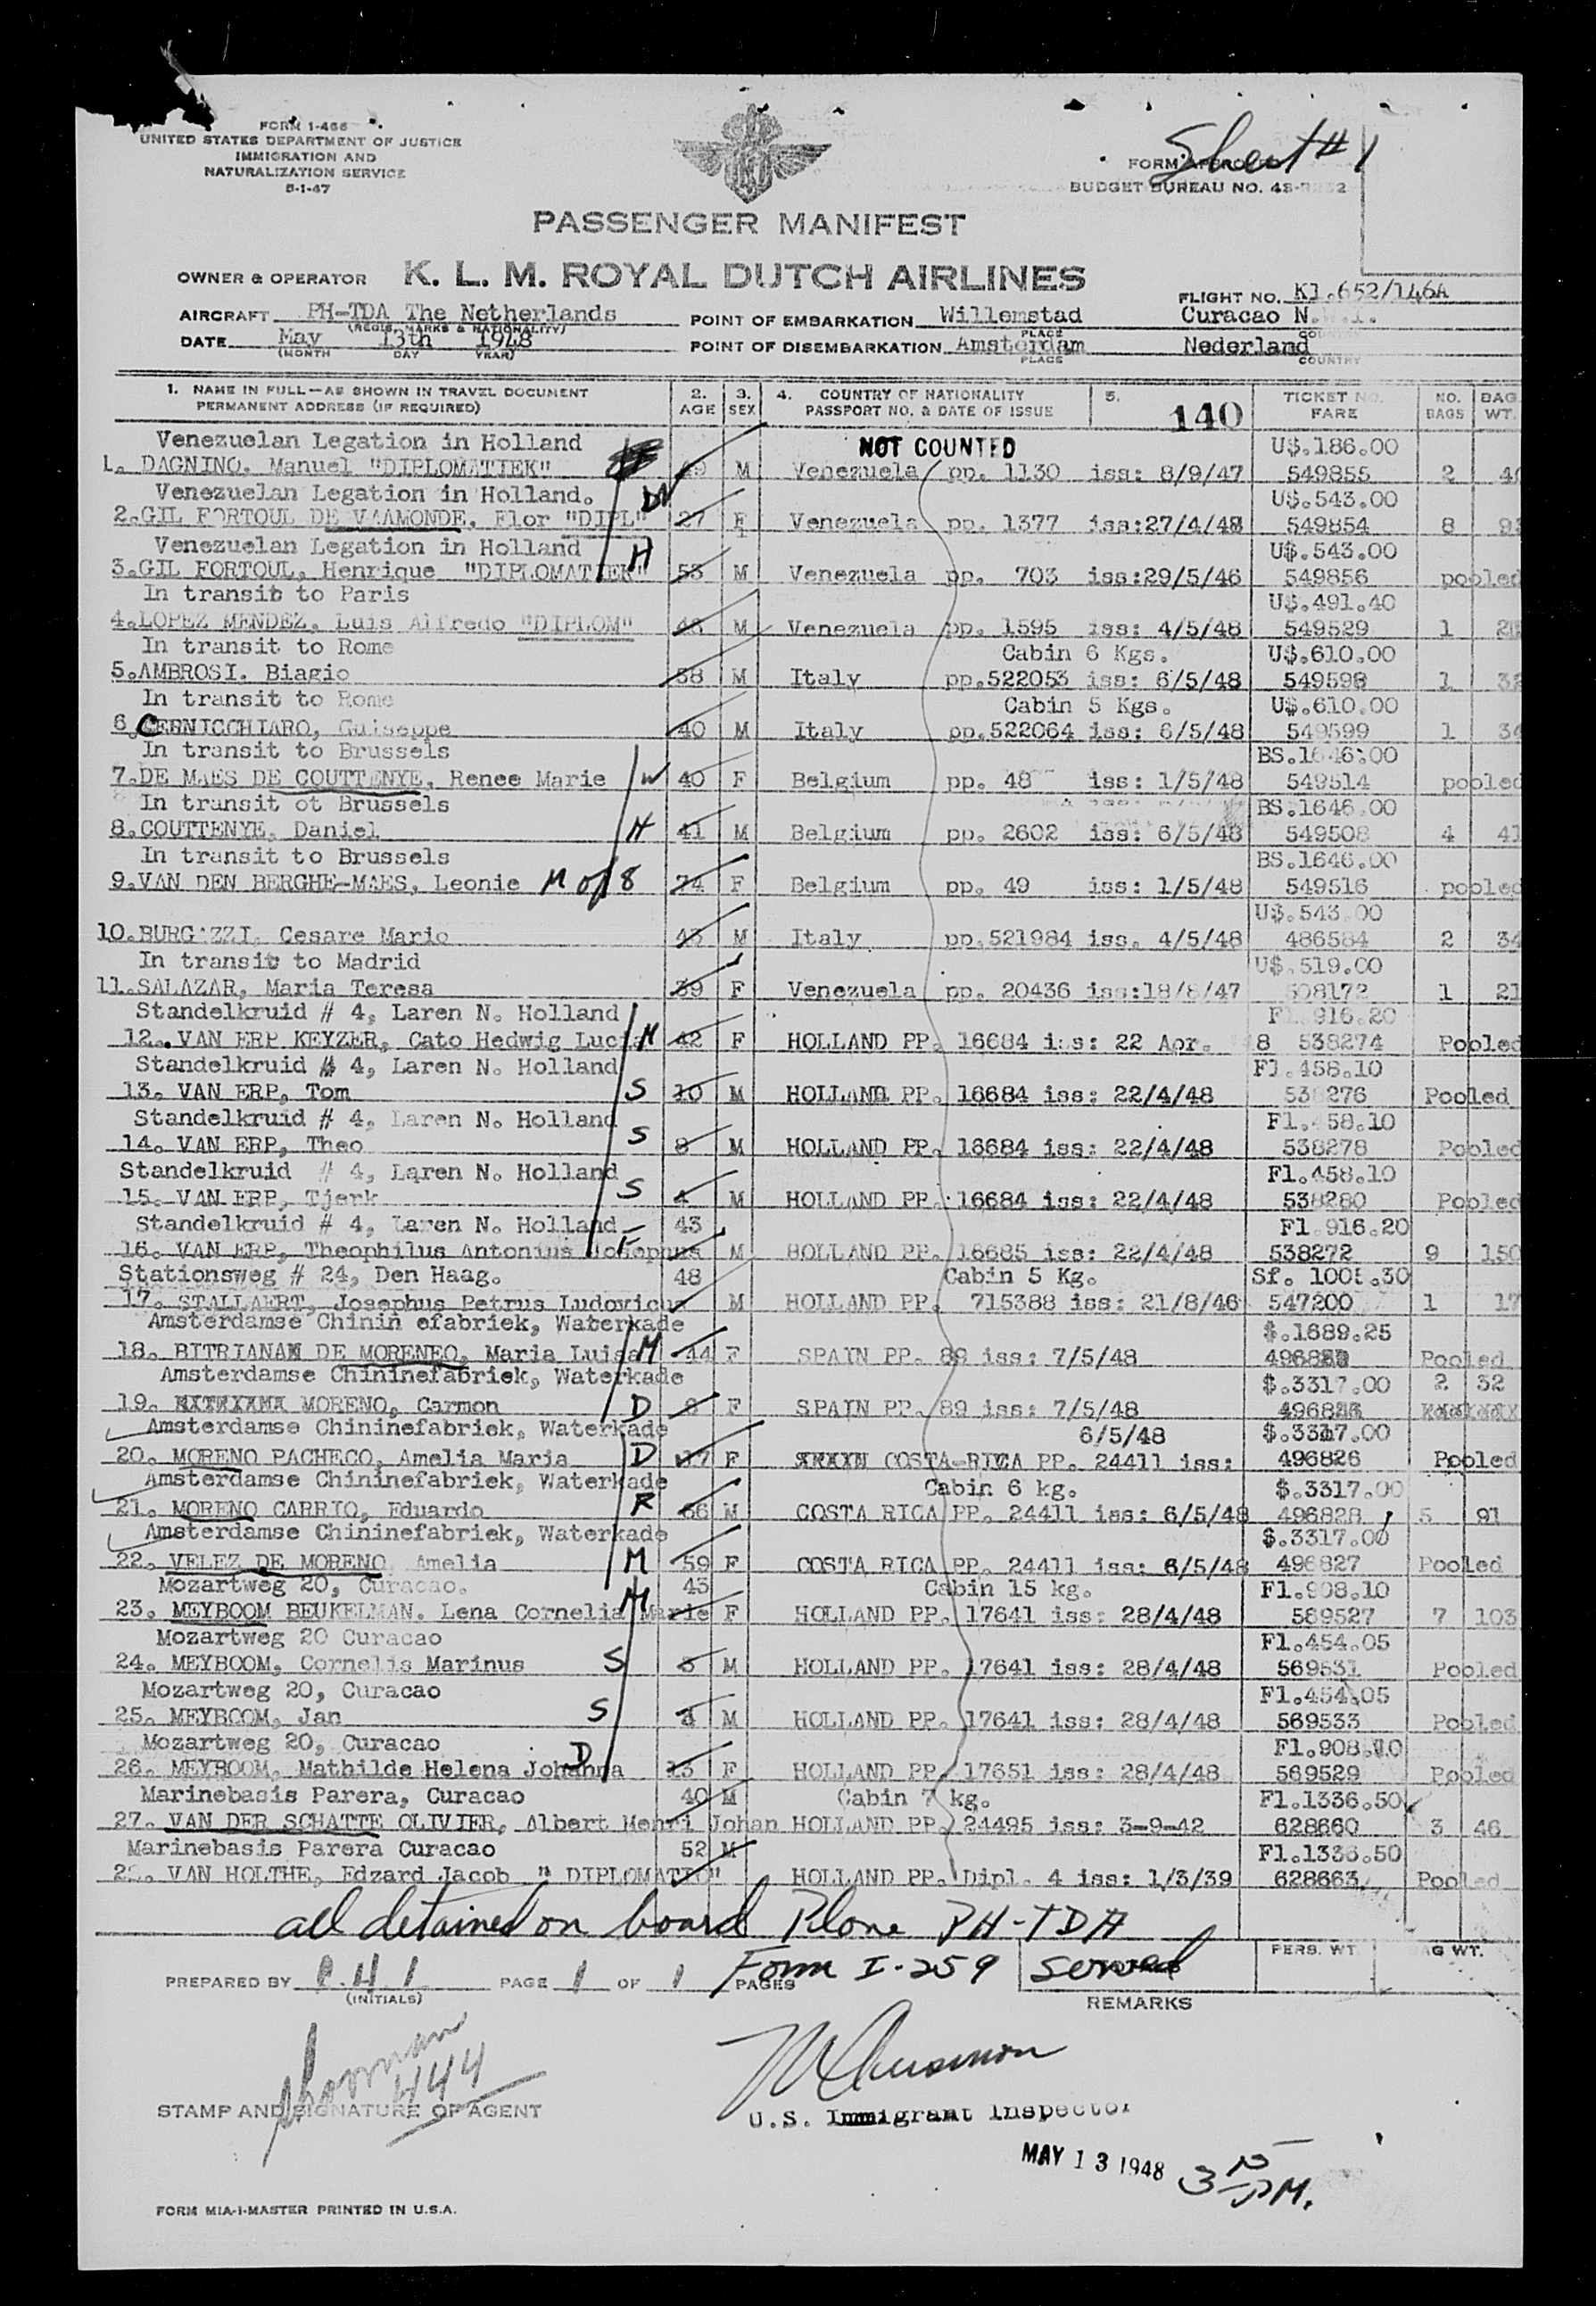 Sheet # 1
FORM 1-466
UNITED STATES DEPARTMENT OF JUSTICE
IMMIGRATION AND
NATURALIZATION SERVICE
5-1-47
FORM APPROVED
BUDGET BUREAU NO. 43-
PASSENGER MANIFEST
OWNER & OPERATOR K. L. M. ROYAL DUTCH AIRLINES
FLIGHT NO. Kl.652/146A
AIRCRAFT PH-TDA The Netherlands POINT OF EMBARKATION Willemstad Curacao N.W.I.
(REGIS. MARKS & NATIONALITY) PLACE COUNTRY
DATE May 13th 1948 POINT OF DISEMBARKATION Amsterdam Nederland
(MONTH DAY YEAR) PLACE COUNTRY
1. NAME IN FULL—AS SHOWN IN TRAVEL DOCUMENT 2. 3. 4. COUNTRY OF NATIONALITY 5. TICKET NO. NO. BAG
PERMANENT ADDRESS (IF REQUIRED) AGE SEX PASSPORT NO. & DATE OF ISSUE 140 FARE BAGS WT.
Venezuelan Legation in Holland NOT COUNTED U$.186.00
1. DAGNINO, Manuel "DIPLOMATIEK" 49 M Venezuela pp. 1130 iss: 8/9/47 549855 2
Venezuelan Legation in Holland. U$.543.00
2.GIL FORTOUL DE VAAMONDE, Flor "DIPL" W 27 F Venezuela pp. 1377 iss:27/4/48 549854 8
Venezuelan Legation in Holland U$.543.00
3.GIL FORTOUL, Henrique "DIPLOMATIEK" H 53 M Venezuela pp. 703 iss:29/5/46 549856 pooled
In transit to Paris U$.491.40
4.LOPEZ MENDEZ, Luis Alfredo "DIPLOM" 48 M Venezuela pp. 1595 iss: 4/5/48 549529 1
In transit to Rome Cabin 6 Kgs. U$.610.00
5.AMBROSI. Biagio 38 M Italy pp.522053 iss: 6/5/48 549598 1 32
In transit to Rome Cabin 5 Kgs. U$.610.00
6.CERNICCHIARO, Guiseppe 40 M Italy pp.522064 iss: 6/5/48 549599 1 34
In transit to Brussels BS.1646.00
7.DE MAES DE COUTTENYE, Renee Marie W 40 F Belgium pp. 48 iss: 1/5/48 549514 pooled
In transit ot Brussels BS.1646.00
8.COUTTENYE, Daniel H 41 M Belgium pp. 2602 iss: 6/5/48 549508 4 41
In transit to Brussels BS.1646.00
9.VAN DEN BERGHE-MAES, Leonie M of 8 74 F Belgium pp. 49 iss: 1/5/48 549516 pooled
U$.543.00
10.BURGAZZI, Cesare Mario 43 M Italy pp.521984 iss. 4/5/48 486584 2 34
In transit to Madrid U$.519.00
11.SALAZAR, Maria Teresa 39 F Venezuela pp. 20436 iss:18/8/47 508172 1 21
Standelkruid # 4, Laren N. Holland Fl.916.20
12. VAN ERP KEYZER, Cato Hedwig Lucia M 42 F HOLLAND PP. 16684 iss: 22 Apr. 48 538274 Pooled
Standelkruid # 4, Laren N. Holland Fl.458.10
13. VAN ERP, Tom S 10 M HOLLAND PP. 16684 iss: 22/4/48 538276 Pooled
Standelkruid # 4, Laren N. Holland Fl.458.10
14. VAN ERP, Theo S 8 M HOLLAND PP. 16684 iss: 22/4/48 538278 Pooled
Standelkruid # 4, Laren N. Holland Fl.458.10
15. VAN ERP, Tjerk S 4 M HOLLAND PP. 16684 iss: 22/4/48 538280 Pooled
Standelkruid # 4, Laren N. Holland 43 Fl.916.20
16. VAN ERP, Theophilus Antonius Josephus F M HOLLAND PP. 16685 iss: 22/4/48 538272 9 150
Stationsweg # 24, Den Haag. 48 Cabin 5 Kg. Sf. 1005.30
17. STALLAERT, Josephus Petrus Ludovicus M HOLLAND PP. 715388 iss: 21/8/46 547200 1 17
Amsterdamse Chinin efabriek, Waterkade $.1689.25
18. BITRIANAN DE MORENEO, Maria Luisa M 44 F SPAIN PP. 89 iss: 7/5/48 Pooled
Amsterdamse Chininefabriek, Waterkade $.3317.00 2 32
19. MORENO, Carmon D 8 F SPAIN PP. 89 iss: 7/5/48
Amsterdamse Chininefabriek, Waterkade 6/5/48 $.3317.00
20. MORENO PACHECO, Amelia Maria D 17 F COSTA RICA PP. 24411 iss: 496826 Pooled
Amsterdamse Chininefabriek, Waterkade Cabin 6 kg. $.3317.00
21. MORENO CARRIO, Eduardo F 66 M COSTA RICA PP. 24411 iss: 6/5/48 496828 5 91
Amsterdamse Chininefabriek, Waterkade $.3317.00
22. VELEZ DE MORENO, Amelia M 59 F COSTA RICA PP. 24411 iss: 6/5/48 496827 Pooled
Mozartweg 20, Curacao. 43 Cabin 15 kg. Fl.908.10
23. MEYBOOM BEUKELMAN. Lena Cornelia Marie M F HOLLAND PP. 17641 iss: 28/4/48 569527 7 103
Mozartweg 20 Curacao Fl.454.05
24. MEYBOOM, Cornelis Marinus S M HOLLAND PP. 17641 iss: 28/4/48 569531 Pooled
Mozartweg 20, Curacao Fl.454.05
25. MEYBOOM, Jan S 4 M HOLLAND PP. 17641 iss: 28/4/48 569533 Pooled
Mozartweg 20, Curacao Fl.908.10
26. MEYBOOM, Mathilde Helena Johanna D 13 F HOLLAND PP. 17651 iss: 28/4/48 569529 Pooled
Marinebasis Parera, Curacao 40 M Cabin 7 kg. Fl.1336.50
27. VAN DER SCHATTE OLIVIER, Albert Henri Johan HOLLAND PP. 24495 iss: 3-9-42 628660 3 46
Marinebasis Parera Curacao 52 M Fl.1336.50
28. VAN HOLTHE, Edzard Jacob " DIPLOMATIC" HOLLAND PP. Dipl. 4 iss: 1/3/39 628663 Pooled
all detained on board Plane PH-TDA
Form I-259 served
PERS. WT. BAG WT.
PREPARED BY P.H.I PAGE 1 OF 1 PAGES
(INITIALS)
REMARKS
444
STAMP AND SIGNATURE OF AGENT
U.S. Immigrant Inspector
MAY 13 1948 3 15 PM.
FORM MIA-1-MASTER PRINTED IN U.S.A.